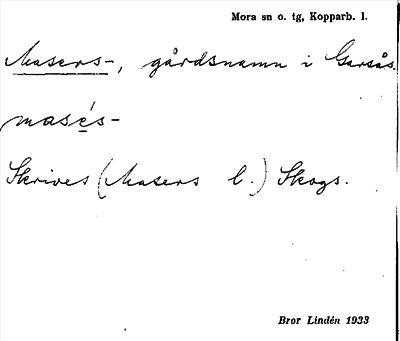 Mora sn o. tg, Kopparb. l.
Masers-, gårdsnamn i Garsås.
masès-
Skrives (Masers l.) Skogs.
Bror Lindén 1933